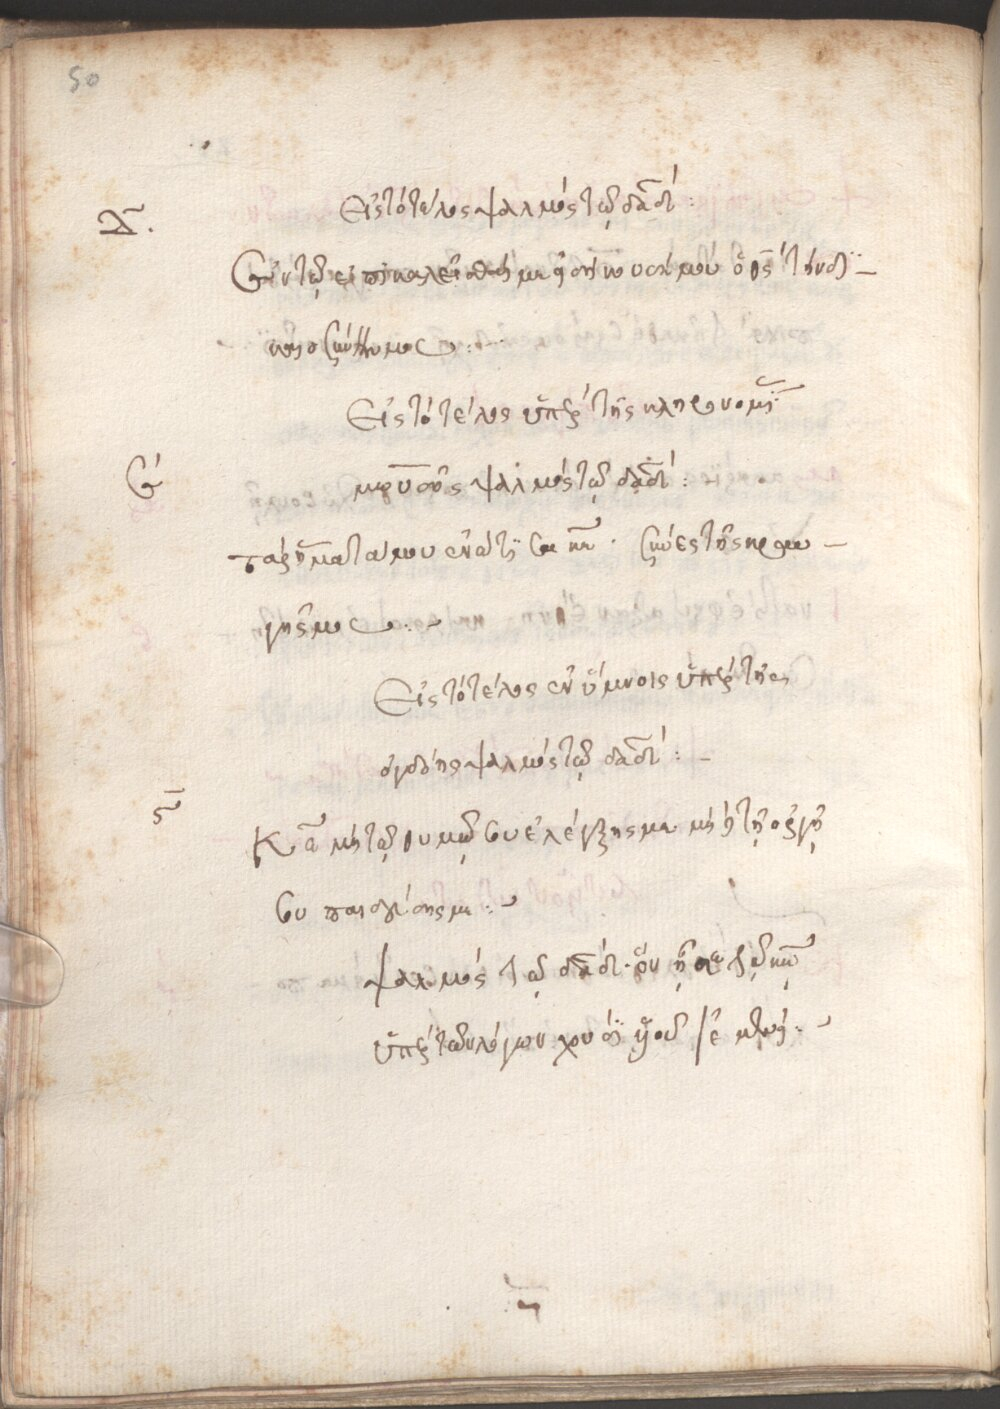 50
Εἰς τὸ τέλος ψαλμὸς τῷ δᾱδ:
Δ.
Ἐν τῷ ἐπικαλεῖσθαί με εἰσήκουσέ μου ὁ θς τῆς δι
καιοσύνης μου:
Εἰς τὸ τέλος ὑπὲρ τῆς κληρονομ
Ε
ούσης ψαλμὸς τῷ δᾱδ:
τὰ ῥήματά μου ἐνώτισαι κε· σύνες τῆς κραυ
γῆς μου:
Εἰς τὸ τέλος ἐν ὕμνοις ὑπὲρ τῆς
ὀγδόης ψαλμὸς τῷ δᾱδ:
ς
Κε μὴ τῷ θυμῷ σου ἐλέγξῃς με μὴ δὲ τῇ ὀργῇ
σου παιδεύσῃς με:
ψαλμὸς τῷ δᾱδ· ὃν ᾖσε τῷ κω
ὑπὲρ τῶν λόγων χουσὶ υἱοῦ ἰεμενεί: